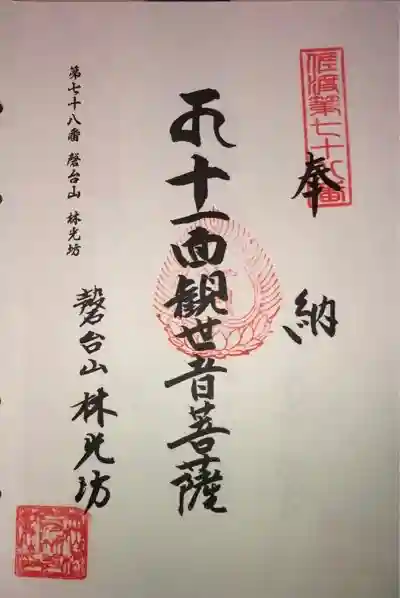 佐渡第七十八番
奉納
十一面観世音菩薩
磬台山 林光坊
第七十八番 磬台山 林光坊